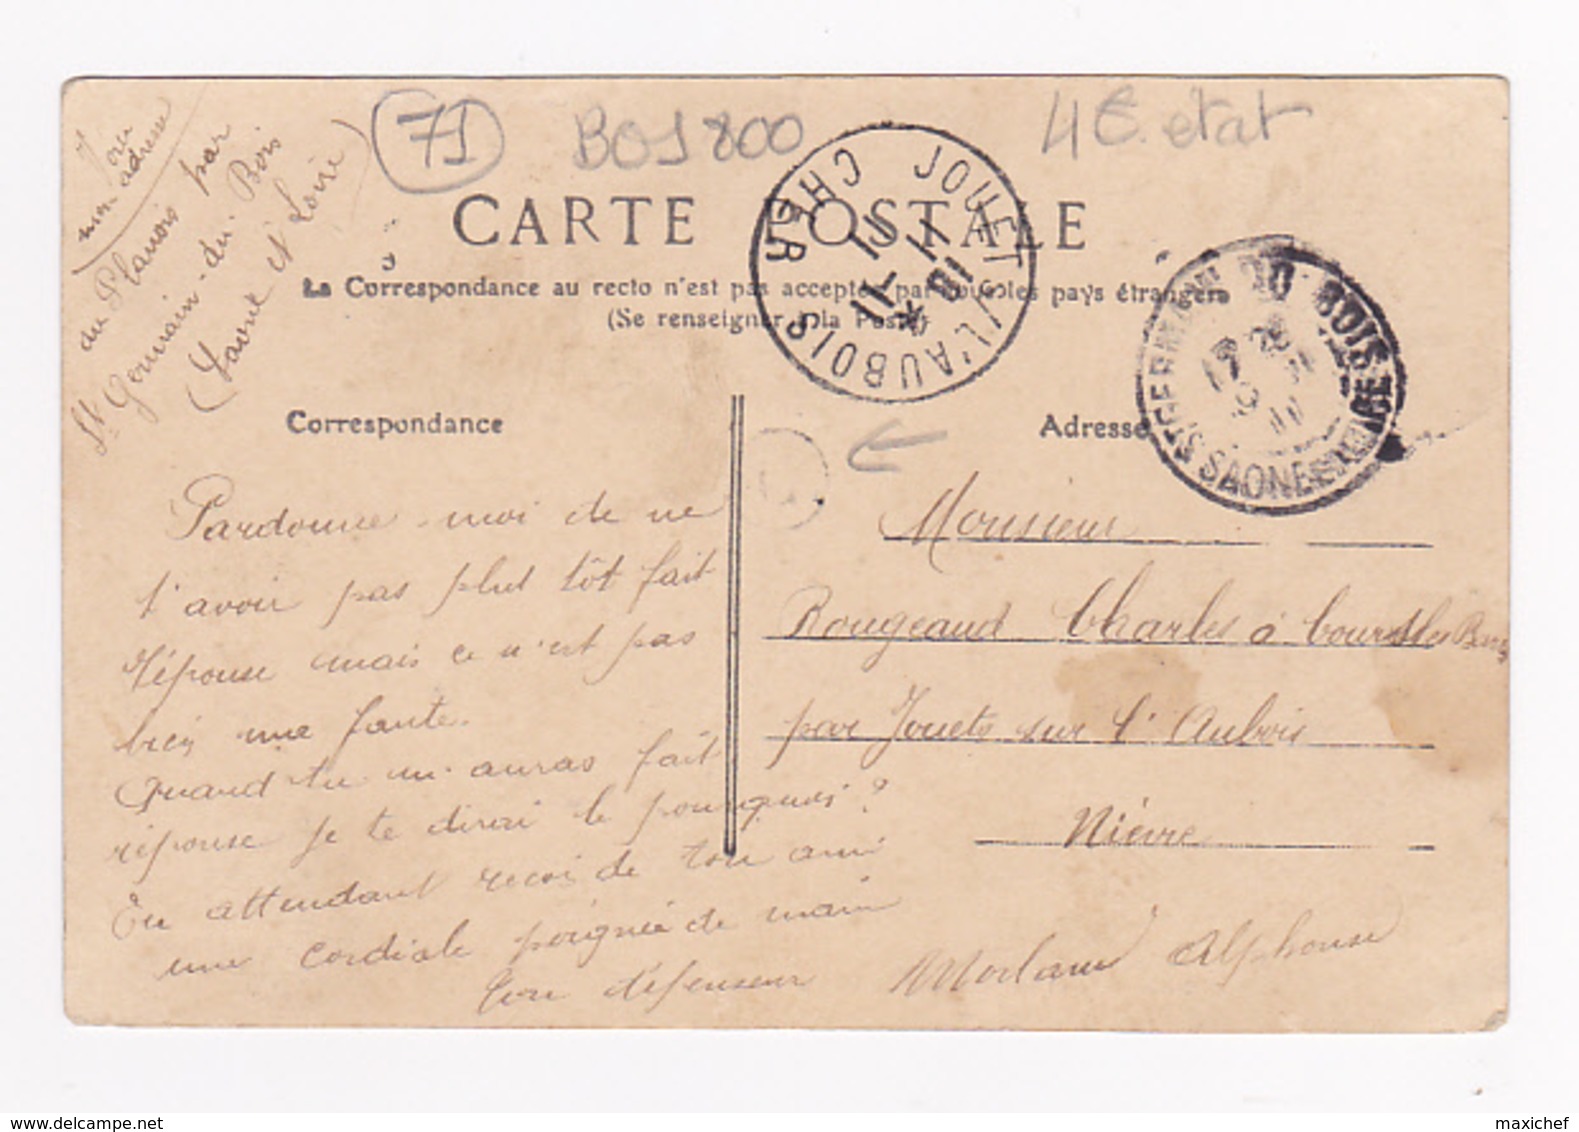 Voici
mon adresse
au Planois par
St Germain-du-Bois
(Saone et Loire)
71
BOJ 800
4€ etat
CARTE POSTALE
La Correspondance au recto n'est pas acceptée par tous les pays étrangers
(Se renseigner à la Poste)
JOUET S/L'AUBOIS
CHER
ST GERMAIN DU BOIS
SAONE ET LOIRE
Correspondance
Adresse
Pardonne-moi de ne
t'avoir pas plut tôt fait
réponse mais ce n'est pas
bien une faute.
Quand tu m'auras fait
réponse je te dirai le pourquoi?
En attendant recois de ton ami
une cordiale poignée de main
Ton défenseur Morlans Alphonse
Monsieur
Rougeaud Charles à Cours les Barres
par Jouets sur l'Aubois
Nièvre
maxichef